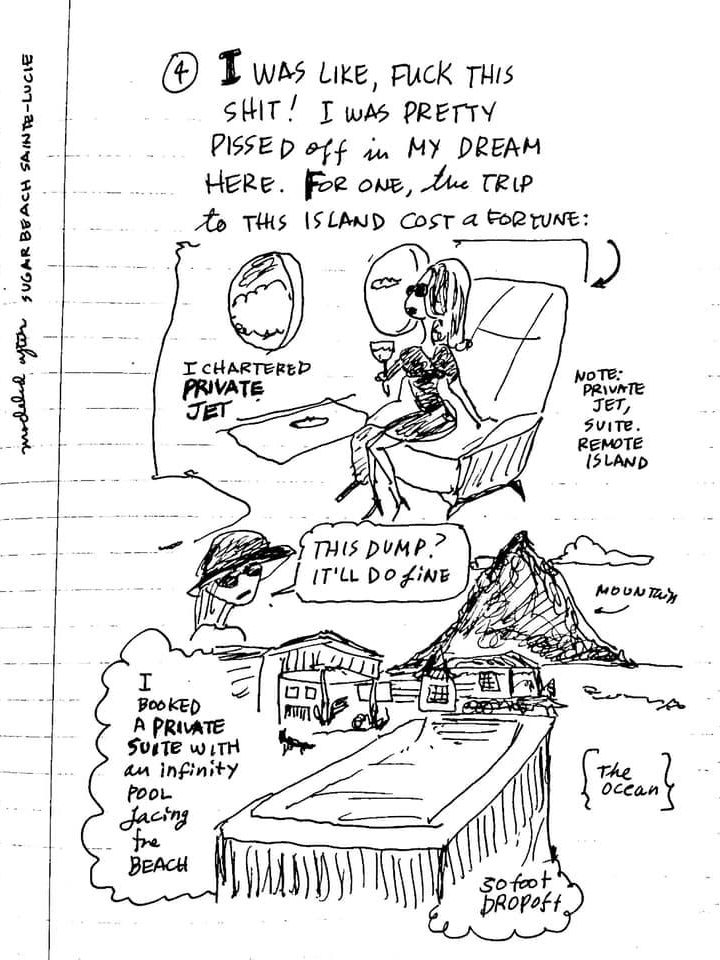 modeled after SUGAR BEACH SAINTE-LUCIE
4 I WAS LIKE, FUCK THIS
SHIT! I WAS PRETTY
PISSED off in MY DREAM
HERE. FOR ONE, the TRIP
to THIS ISLAND COST a FORTUNE:
I CHARTERED
PRIVATE
JET
NOTE:
PRIVATE
JET,
SUITE.
REMOTE
ISLAND
THIS DUMP?
IT'LL DO fiNE
MOUNTAIN
I
BOOKED
A PRIVATE
SUITE WITH
an infinity
POOL
facing
the
BEACH
{The
ocean}
30 foot
DROPOff